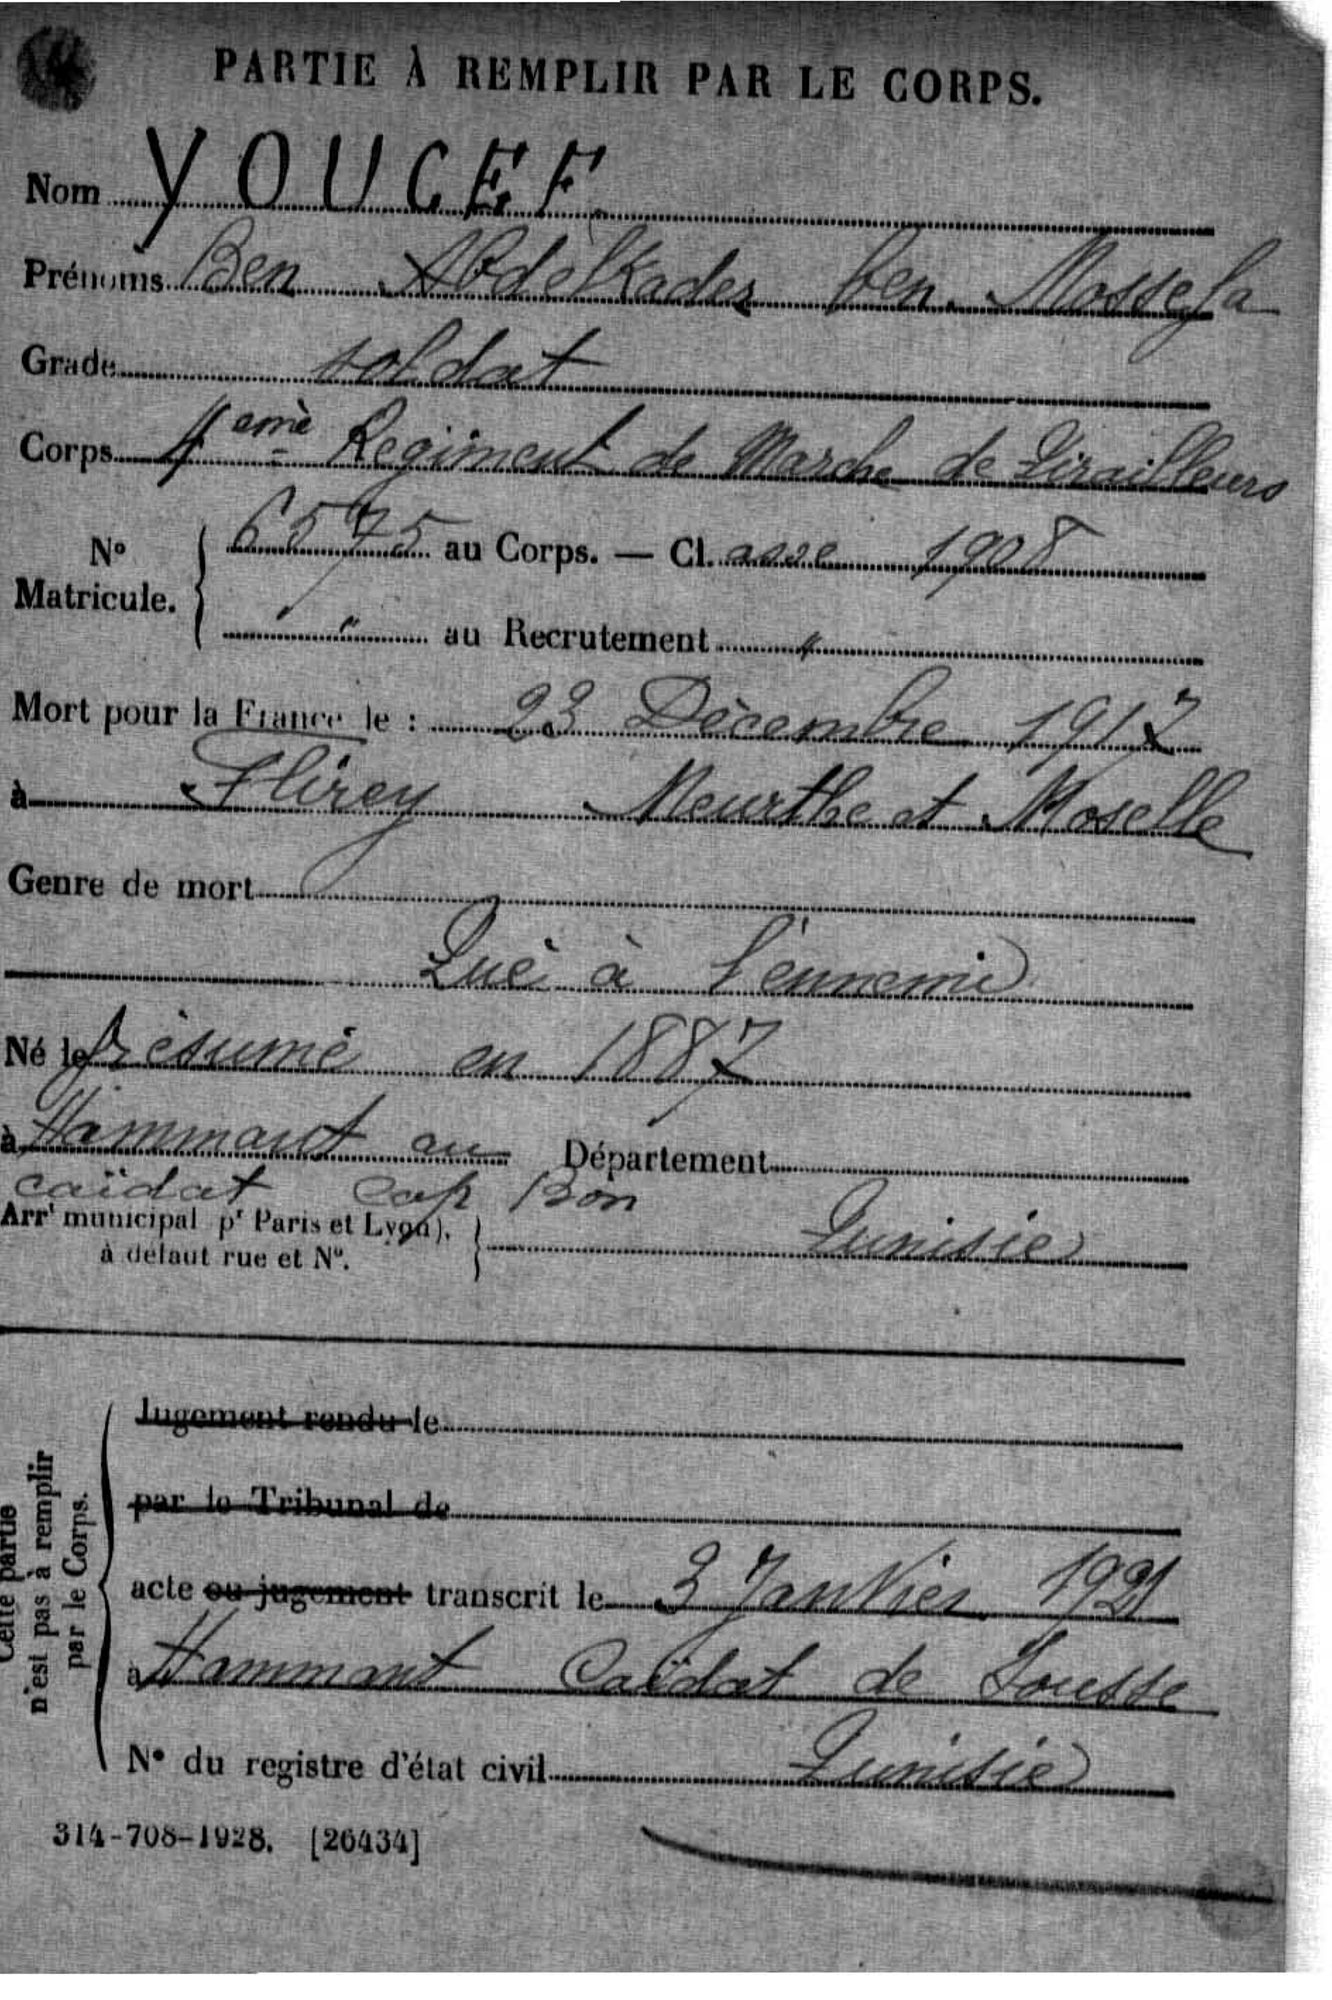 PARTIE À REMPLIR PAR LE CORPS.
Nom YOUCEF
Prénoms Ben Abdelkader ben Mossefa
Grade soldat
Corps 4eme Régiment de Marche de Tirailleurs
N° Matricule. 6575 au Corps. — Cl. asse 1908
" au Recrutement "
Mort pour la France le : 23 Décembre 1917
à Flirey Meurthe et Moselle
Genre de mort
Tué à l'ennemi
Né le présumé en 1887
à Hammant au Département
caïdat Cap Bon
Arrt municipal pr Paris et Lyon),
à défaut rue et N°. Tunisie
Jugement rendu le
par le Tribunal de
acte ou jugement transcrit le 3 Janvier 1921
à Hammant Caïdat de Sousse
N° du registre d'état civil Tunisie
Cette partie
n'est pas à remplir
par le Corps.
314-708-1928. [26434]